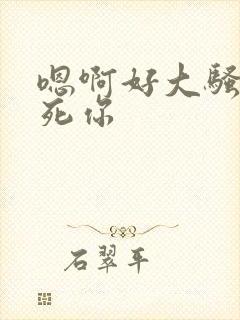 嗯啊好大骚
死你
石翠平